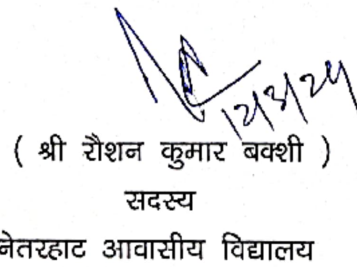 12/3/24
( श्री रौशन कुमार बक्शी )
सदस्य
नेतरहाट आवासीय विद्यालय